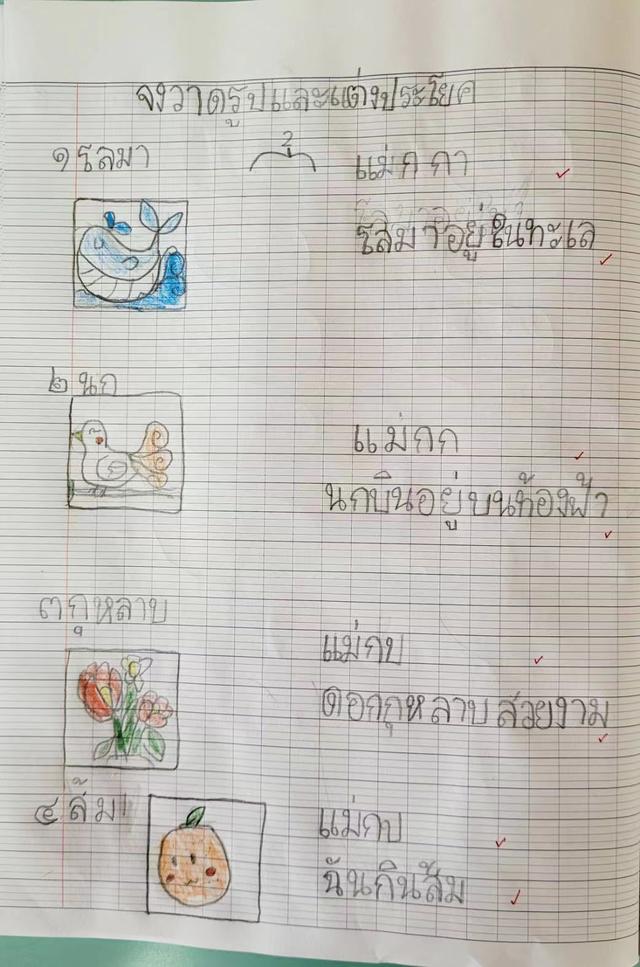 จงวาดรูปและแต่งประโยค
๑ โลมา
2
แม่ ก กา
โลมาอยู่ในทะเล
๒ นก
แม่กก
นกบินอยู่บนท้องฟ้า
๓ กุหลาบ
แม่กบ
ดอกกุหลาบสวยงาม
๔ ส้ม
แม่กบ
ฉันกินส้ม